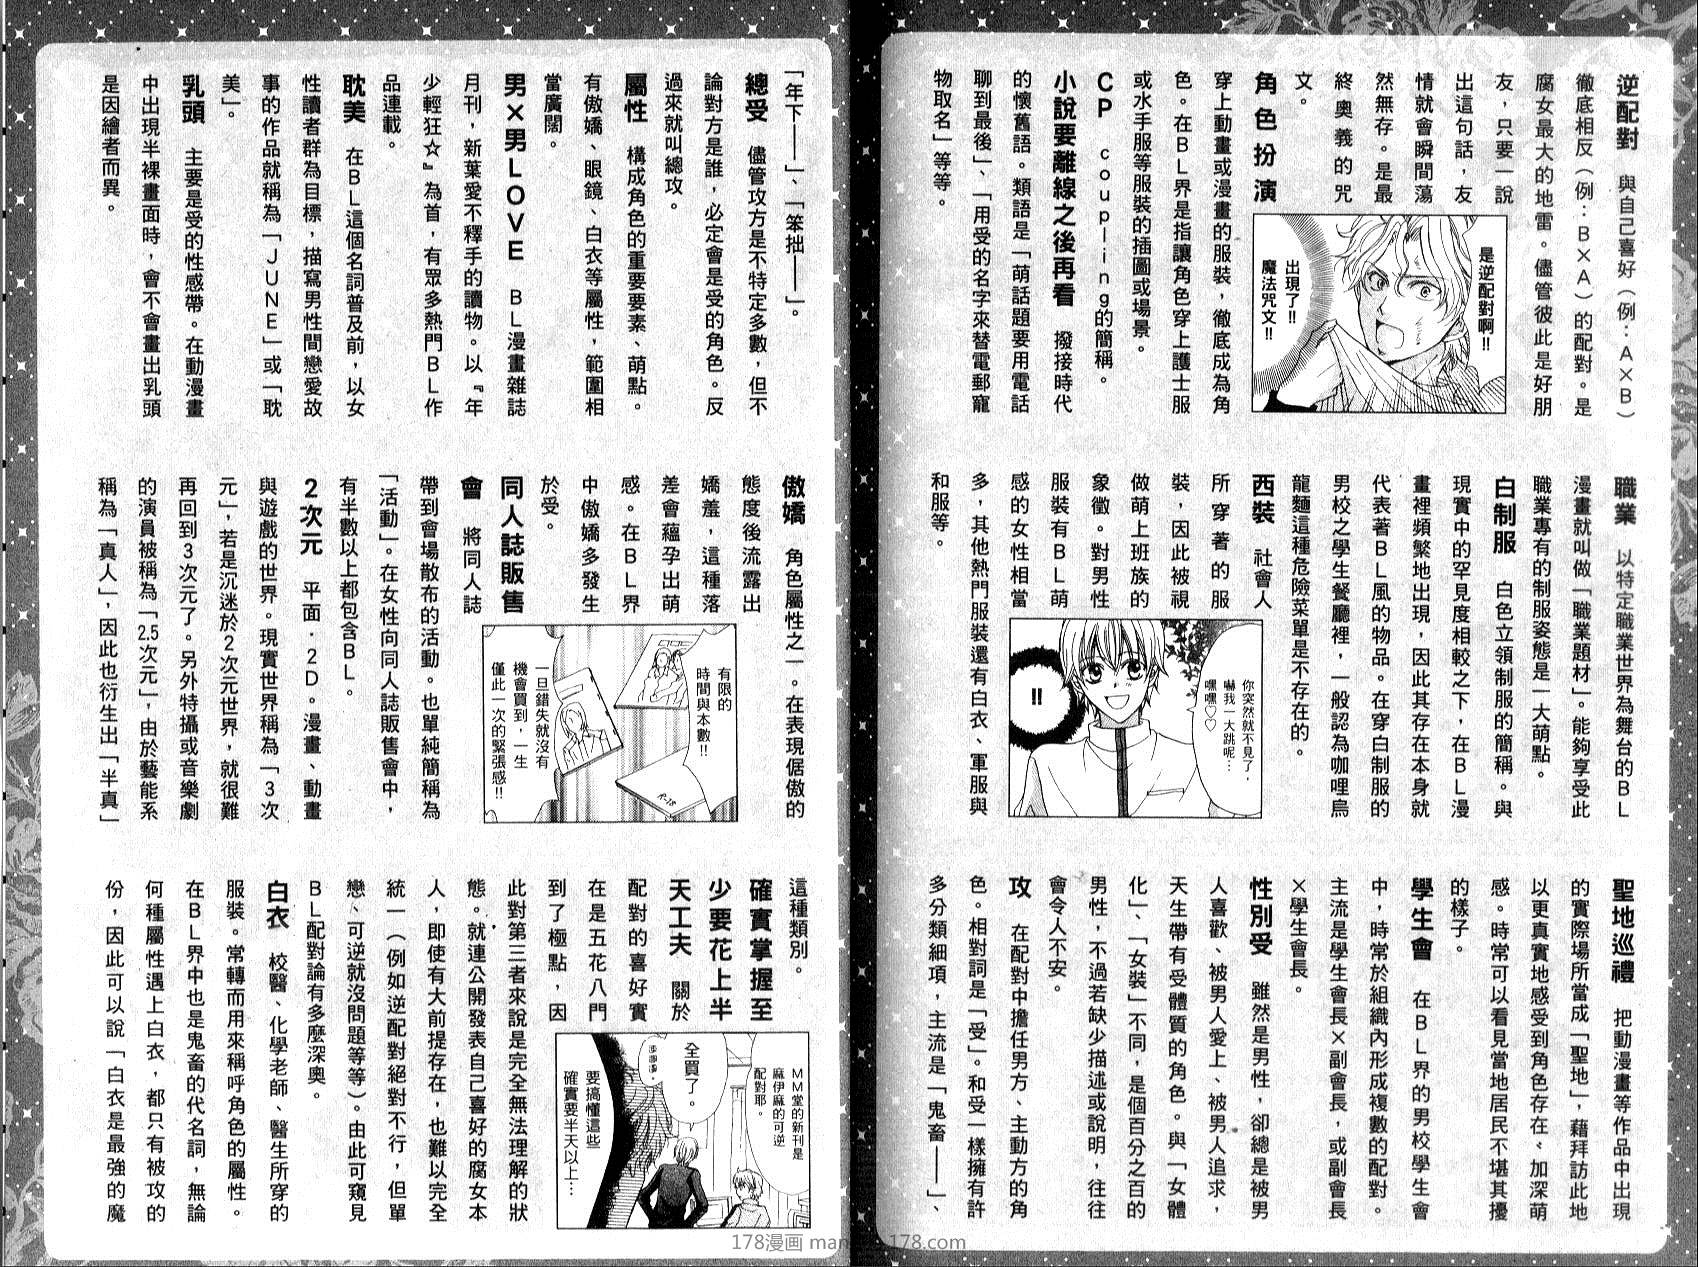 逆配對　與自己喜好（例：A×B）
徹底相反（例：B×A）的配對。是
腐女最大的地雷。儘管彼此是好朋
友，只要一說
出這句話，友
情就會瞬間蕩
然無存。是最
終奧義的咒
文。
是逆配對啊!!
出現了!!
魔法咒文!!
角色扮演
穿上動畫或漫畫的服裝，徹底成為角
色。在BL界是指讓角色穿上護士服
或水手服等服裝的插圖或場景。
CP　coupling的簡稱。
小說要離線之後再看　撥接時代
的懷舊語。類語是「萌話題要用電話
聊到最後」、「用受的名字來替電郵寵
物取名」等等。
職業　以特定職業世界為舞台的BL
漫畫就叫做「職業題材」。能夠享受此
職業專有的制服姿態是一大萌點。
白制服　白色立領制服的簡稱。與
現實中的罕見度相較之下，在BL漫
畫裡頻繁地出現，因此其存在本身就
代表著BL風的物品。在穿白制服的
男校之學生餐廳裡，一般認為咖哩烏
龍麵這種危險菜單是不存在的。
西裝　社會人
所穿著的服
裝，因此被視
做萌上班族的
象徵。對男性
服裝有BL萌
感的女性相當
多，其他熱門服裝還有白衣、軍服與
和服等。
你突然就不見了，
嚇我一大跳呢…
嘿嘿♡♡
!!
聖地巡禮　把動漫畫等作品中出現
的實際場所當成「聖地」，藉拜訪此地
以更真實地感受到角色存在、加深萌
感。時常可以看見當地居民不堪其擾
的樣子。
學生會　在BL界的男校學生會
中，時常於組織內形成複數的配對。
主流是學生會長×副會長，或副會長
×學生會長。
性別受　雖然是男性，卻總是被男
人喜歡、被男人愛上、被男人追求，
天生帶有受體質的角色。與「女體
化」、「女裝」不同，是個百分之百的
男性，不過若缺少描述或說明，往往
會令人不安。
攻　在配對中擔任男方、主動方的角
色。相對詞是「受」。和受一樣擁有許
多分類細項，主流是「鬼畜——」、
「年下——」、「笨拙——」。
總受　儘管攻方是不特定多數，但不
論對方是誰，必定會是受的角色。反
過來就叫總攻。
屬性　構成角色的重要要素、萌點。
有傲嬌、眼鏡、白衣等屬性，範圍相
當廣闊。
男×男LOVE　BL漫畫雜誌
月刊，新葉愛不釋手的讀物。以『年
少輕狂☆』為首，有眾多熱門BL作
品連載。
耽美　在BL這個名詞普及前，以女
性讀者群為目標，描寫男性間戀愛故
事的作品就稱為「JUNE」或「耽
美」。
乳頭　主要是受的性感帶。在動漫畫
中出現半裸畫面時，會不會畫出乳頭
是因繪者而異。
傲嬌　角色屬性之一。在表現倨傲的
態度後流露出
嬌羞，這種落
差會蘊孕出萌
感。在BL界
中傲嬌多發生
於受。
同人誌販售
會　將同人誌
帶到會場散布的活動。也單純簡稱為
「活動」。在女性向同人誌販售會中，
有半數以上都包含BL。
有限的
時間與本數!!
一旦錯失就沒有
機會買到，一生
僅此一次的緊張感!!
R-18
2次元　平面．2D。漫畫、動畫
與遊戲的世界。現實世界稱為「3次
元」，若是沉迷於2次元世界，就很難
再回到3次元了。另外特攝或音樂劇
的演員被稱為「2.5次元」，由於藝能系
稱為「真人」，因此也衍生出「半真」
這種類別。
確實掌握至
少要花上半
天工夫　關於
配對的喜好實
在是五花八門
到了極點，因
此對第三者來說是完全無法理解的狀
態。就連公開發表自己喜好的腐女本
人，即使有大前提存在，也難以完全
統一（例如逆配對絕對不行，但單
戀、可逆就沒問題等等）。由此可窺見
BL配對論有多麼深奧。
MM堂的新刊是
麻伊麻的可逆
配對耶。
全買了。
要搞懂這些
確實要半天以上…
白衣　校醫、化學老師、醫生所穿的
服裝。常轉而用來稱呼角色的屬性。
在BL界中也是鬼畜的代名詞，無論
何種屬性遇上白衣，都只有被攻的
份，因此可以說「白衣是最強的魔
178漫画 man 178.com